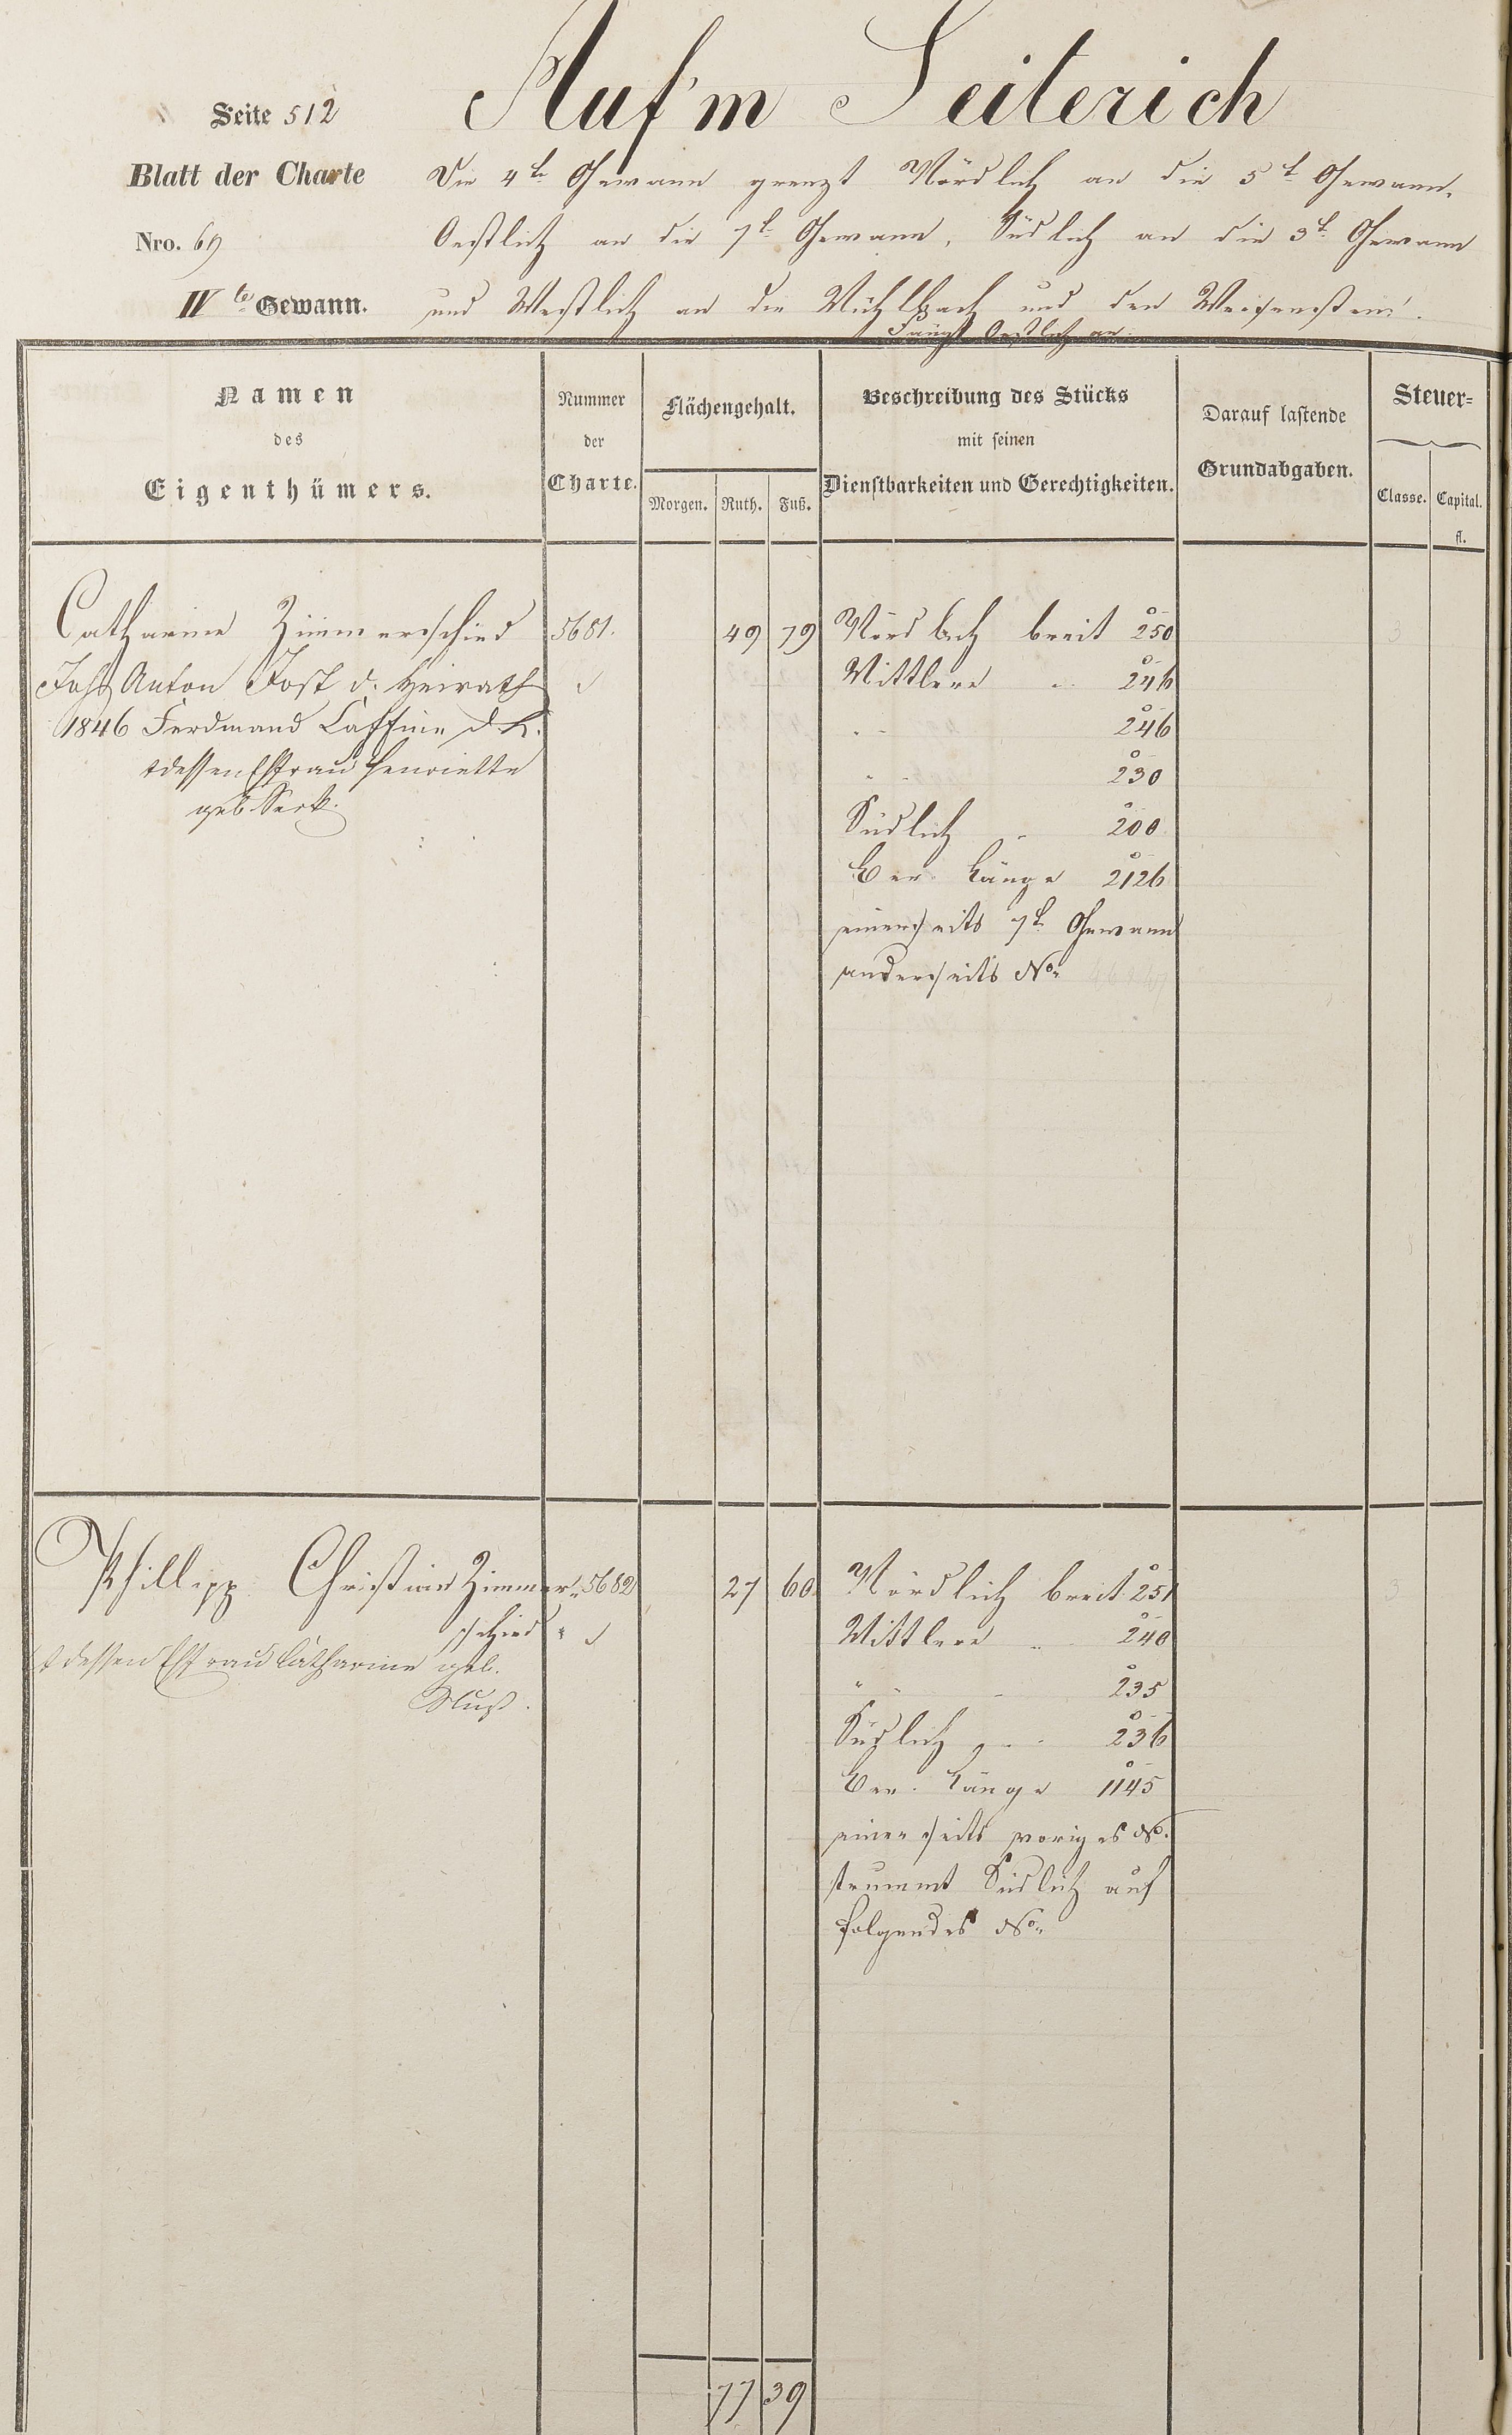 Seite 512
Auf'm Seiterich
Blatt der Charte
Nro. 69
IV te Gewann.
Die 4te Gewann grenzt Nördlich an die 5t Gewann,
Oestlich an die 7t Gewann, Südlich an die 3t Gewann
und Westlich an die Mühlbach und den Weisenstein.
Fängt Oestlich an.
Namen
des
Eigenthümers.
Nummer
der
Charte.
Flächengehalt.
Morgen. Ruth. Fuß.
Beschreibung des Stücks
mit seinen
Dienstbarkeiten und Gerechtigkeiten.
Darauf lastende
Grundabgaben.
Steuer=
Classe. Capital.
fl.
Catharina Zimmerschied 5681. 49 79 Nördlich breit 250
Joh Anton Jost d. Heirath Mittlere " 246
1846 Ferdinand d. K. " " 246
& dessen Ehfrau Henriette " " 230
geb.
Südlich " 200
Ver. Länge 2126
einerseits 7t Gewann
anderseits No
Phillipp Christian Zimmer= 5682 27 60 Nördlich breit 251
schied Mittlere " 240
& dessen Ehfrau Catharine geb. " " 235
Südlich " 236
Ver. Länge 1145
einerseits voriges No.
Südlich auf
folgendes No
77 39